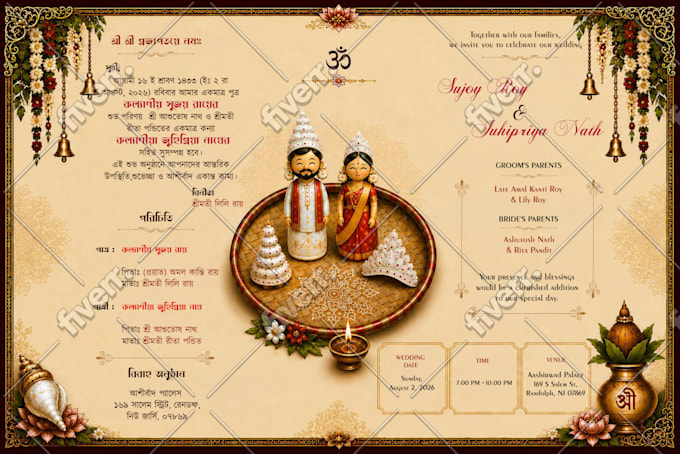 শ্রী শ্রী প্রজাপতয়ে নমঃ
সুধী,
আগামী ১৬ ই শ্রাবণ ১৪৩৩ (ইং ২ রা
আগস্ট, ২০২৬) রবিবার আমার একমাত্র পুত্র
কল্যাণীয় সুজয় রায়ের
শুভ পরিণয় শ্রী আশুতোষ নাথ ও শ্রীমতী
রীতা পন্ডিতের একমাত্র কন্যা
কল্যাণীয়া জুহিপ্রিয়া নাথের
সহিত সুসম্পন্ন হবে।
এই শুভ অনুষ্ঠানে আপনাদের আন্তরিক
উপস্থিতি,শুভেচ্ছা ও আশীর্বাদ একান্ত কাম্য।
বিনীতা
শ্রীমতী লিলি রায়
পরিচিতি
পাত্র : কল্যাণীয় সুজয় রায়
পিতাঃ (প্রয়াত) অমল কান্তি রায়
মাতাঃ শ্রীমতী লিলি রায়
পাত্রী : কল্যাণীয়া জুহিপ্রিয়া নাথ
পিতাঃ শ্রী আশুতোষ নাথ
মাতাঃ শ্রীমতী রীতা পন্ডিত
বিবাহ অনুষ্ঠান
আশীর্বাদ প্যালেস
১৬৯ সালেম স্ট্রিট, রেনডল্ফ,
নিউ জার্সি, ০৭৮৬৯
ॐ
Together with our families,
we invite you to celebrate our wedding
Sujoy Roy
&
Juhipriya Nath
GROOM'S PARENTS
Late Amal Kanti Roy
& Lily Roy
BRIDE'S PARENTS
Ashutosh Nath
& Rita Pandit
Your presence and blessings
would be a cherished addition
to our special day.
WEDDING
DATE
Sunday,
August 2, 2026
TIME
7:00 PM –10:00 PM
VENUE
Aashirwad Palace
169 S Salem St,
Randolph, NJ 07869
শ্রী
fiverr.